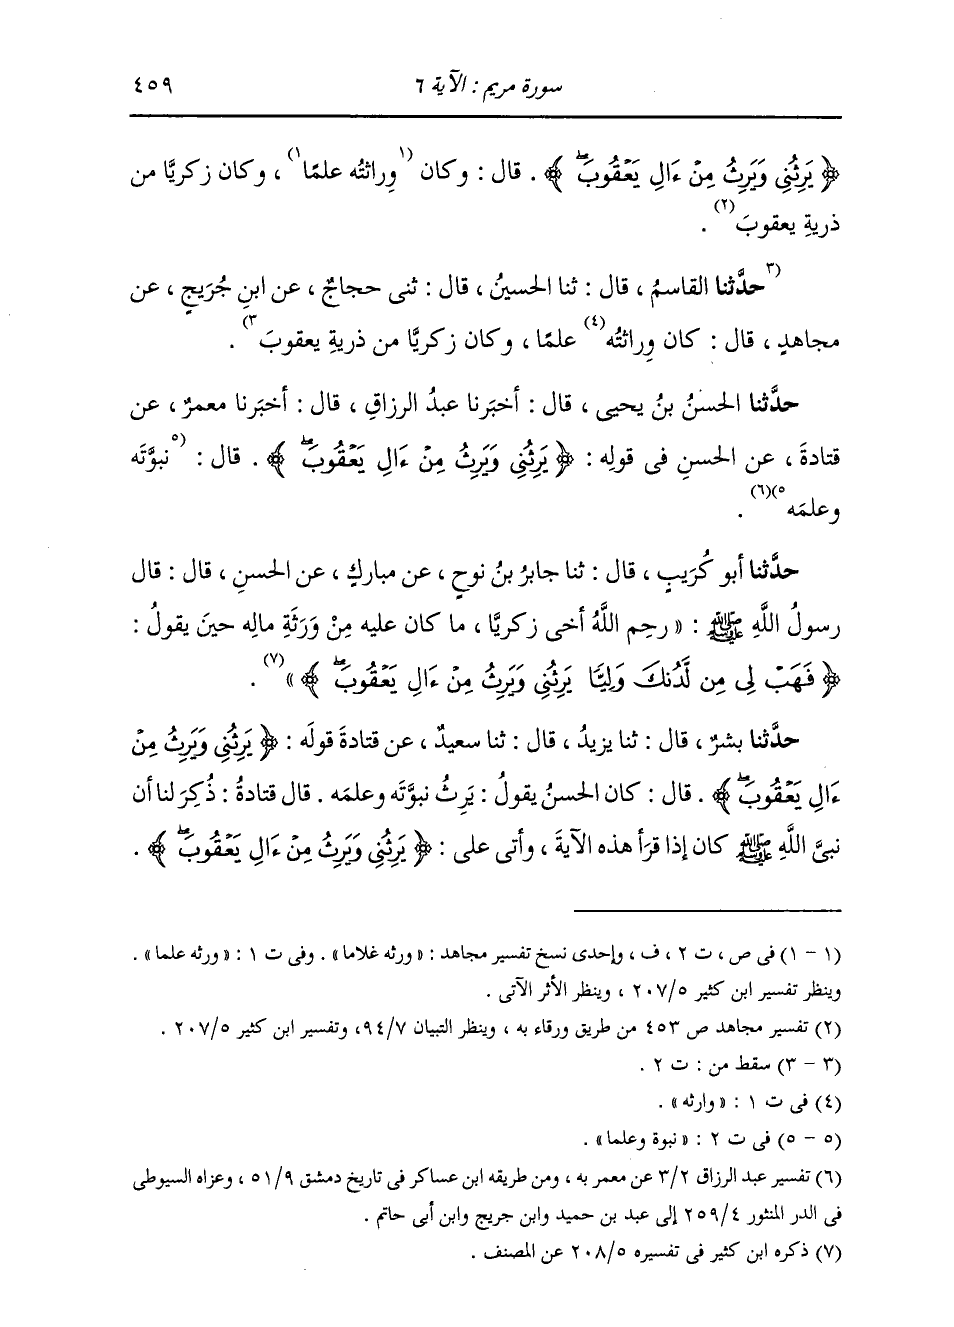 سورة مريم : الآية ٦ ٤٥٩
﴿ يَرِثُنِى وَيَرِثُ مِنْ ءَالِ يَعْقُوبَۖ ﴾ . قال : وكان (١وِراثتُه علمًا١) ، وكان زكريَّا من
ذريةِ يعقوبَ(٢) .
(٣حدَّثنا القاسمُ ، قال : ثنا الحسينُ ، قال : ثنى حجاجٌ ، عن ابنِ جُرَيجٍ ، عن
مجاهدٍ ، قال : كان وِراثتُه(٤) علمًا ، وكان زكريَّا من ذريةِ يعقوبَ٣) .
حدَّثنا الحسنُ بنُ يحيى ، قال : أخبَرنا عبدُ الرزاقِ ، قال : أخبَرنا معمرٌ ، عن
قتادةَ ، عن الحسنِ فى قولِه : ﴿ يَرِثُنِى وَيَرِثُ مِنْ ءَالِ يَعْقُوبَۖ ﴾ . قال : (٥نبوَّتَه
وعلمَه٥)(٦) .
حدَّثنا أبو كُرَيبٍ ، قال : ثنا جابرُ بنُ نوحٍ ، عن مباركٍ ، عن الحسنِ ، قال : قال
رسولُ اللَّهِ ﷺ : « رحِم اللَّهُ أخى زكريَّا ، ما كان عليه مِنْ وَرَثَةِ مالِه حينَ يقولُ :
﴿ فَهَبْ لِى مِن لَّدُنكَ وَلِيًّا يَرِثُنِى وَيَرِثُ مِنْ ءَالِ يَعْقُوبَۖ ﴾ »(٧) .
حدَّثنا بشرٌ ، قال : ثنا يزيدُ ، قال : ثنا سعيدٌ ، عن قتادةَ قولَه : ﴿ يَرِثُنِى وَيَرِثُ مِنْ
ءَالِ يَعْقُوبَۖ ﴾ . قال : كان الحسنُ يقولُ : يَرِثُ نبوَّتَه وعلمَه . قال قتادةُ : ذُكِرَ لنا أن
نبىَّ اللَّهِ ﷺ كان إذا قرَأ هذه الآيةَ ، وأتى على : ﴿ يَرِثُنِى وَيَرِثُ مِنْ ءَالِ يَعْقُوبَۖ ﴾ .
(١ - ١) فى ص ، ت ٢ ، ف ، وإحدى نسخ تفسير مجاهد : « ورثه غلاما » . وفى ت ١ : « ورثه علما » .
وينظر تفسير ابن كثير ٢٠٧/٥ ، وينظر الأثر الآتى .
(٢) تفسير مجاهد ص ٤٥٣ من طريق ورقاء به ، وينظر التبيان ٩٤/٧ ، وتفسير ابن كثير ٢٠٧/٥ .
(٣ - ٣) سقط من : ت ٢ .
(٤) فى ت ١ : « وارثه » .
(٥ - ٥) فى ت ٢ : « نبوة وعلما » .
(٦) تفسير عبد الرزاق ٣/٢ عن معمر به ، ومن طريقه ابن عساكر فى تاريخ دمشق ٥١/٩ ، وعزاه السيوطى
فى الدر المنثور ٢٥٩/٤ إلى عبد بن حميد وابن جريج وابن أبى حاتم .
(٧) ذكره ابن كثير فى تفسيره ٢٠٨/٥ عن المصنف .